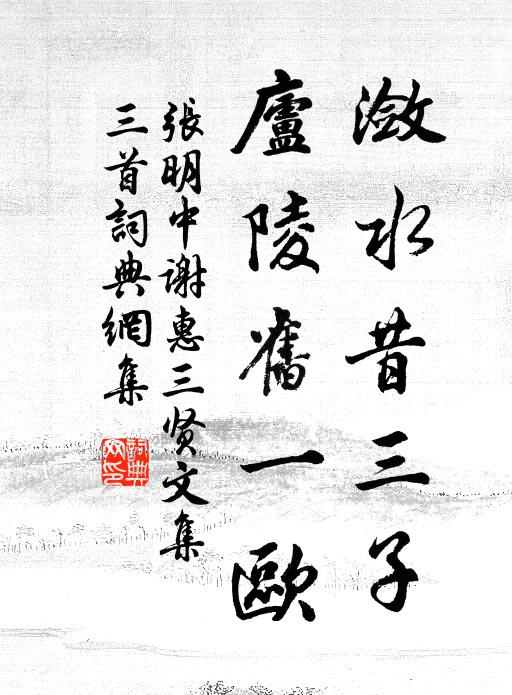 瀲水昔三子
廬陵舊一歐
張明中谢惠三贤文集
三首詞典網集
詞典網印